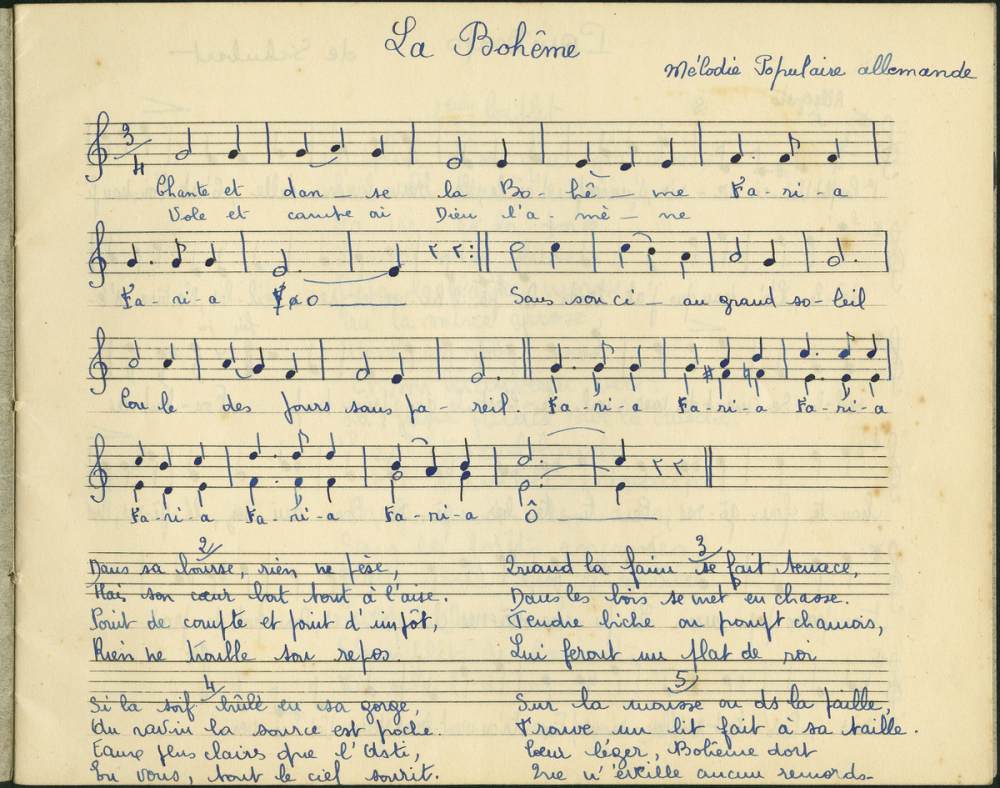 La Bohême
Mélodie Populaire allemande
3/4
Chante et dan - se la Bo - hê - me Fa - ri - a
Vole et campe où Dieu l'a - mè - ne
Fa - ri - a F a o Sans souci - au grand so - leil
Coule des jours sans pa - reil. Fa - ri - a Fa - ri - a Fa - ri - a
Fa - ri - a Fa - ri - a Fa - ri - a Ô
2
Dans sa bourse, rien ne pèse,
Mais son cœur bat tout à l'aise.
Point de compte et point d'impôt,
Rien ne trouble son repos.
3
Quand la faim se fait tenace,
Dans les bois se met en chasse.
Tendre biche ou prompt chamois,
Lui feront un plat de roi
4
Si la soif brûle en sa gorge,
Du ravin la source est proche.
Eaux plus claires que l'Asti,
En vous, tout le ciel sourit.
5
Sur la mousse ou ds la paille,
Trouve un lit fait à sa taille.
Cœur léger, Bohême dort
Que n'éveille aucun remords